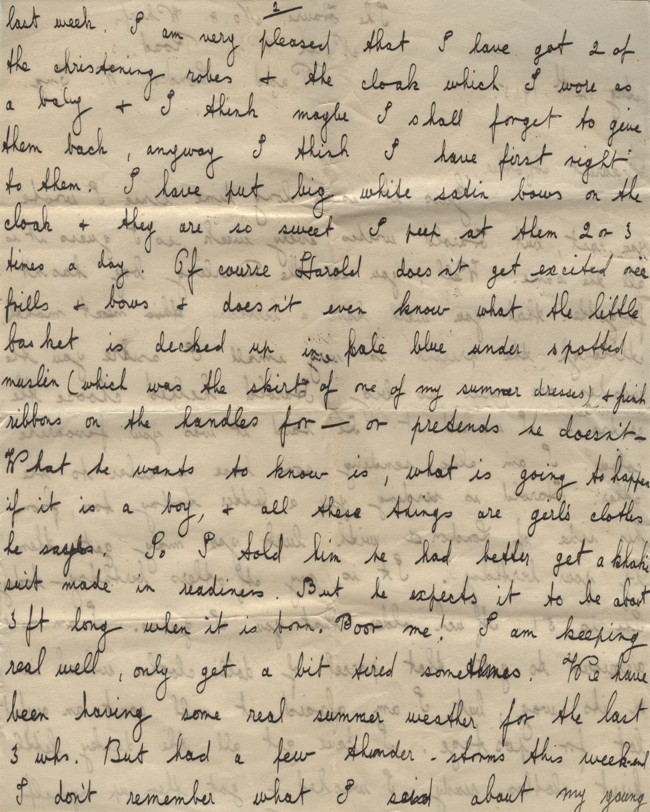 2
last week. I am very pleased that I have got 2 of
the christening robes & the cloak which I wore as
a baby & I think maybe I shall forget to give
them back, anyway I think I have first right
to them. I have put big white satin bows on the
cloak & they are so sweet I peep at them 2 or 3
times a day. Of course Harold doesn't get excited over
frills & bows & doesn't even know what the little
basket is decked up in pale blue under spotted
muslin (which was the skirt of one of my summer dresses) & pink
ribbons on the handles for — or pretends he doesn't —
What he wants to know is, what is going to happen
if it is a boy, & all these things are girl's clothes
he says. So I told him he had better get a khaki
suit made in readiness. But he expects it to be about
3 ft long when it is born. Poor me! I am keeping
real well, only get a bit tired sometimes. We have
been having some real summer weather for the last
3 wks. But had a few thunder-storms this week-end
I don't remember what I said about my young